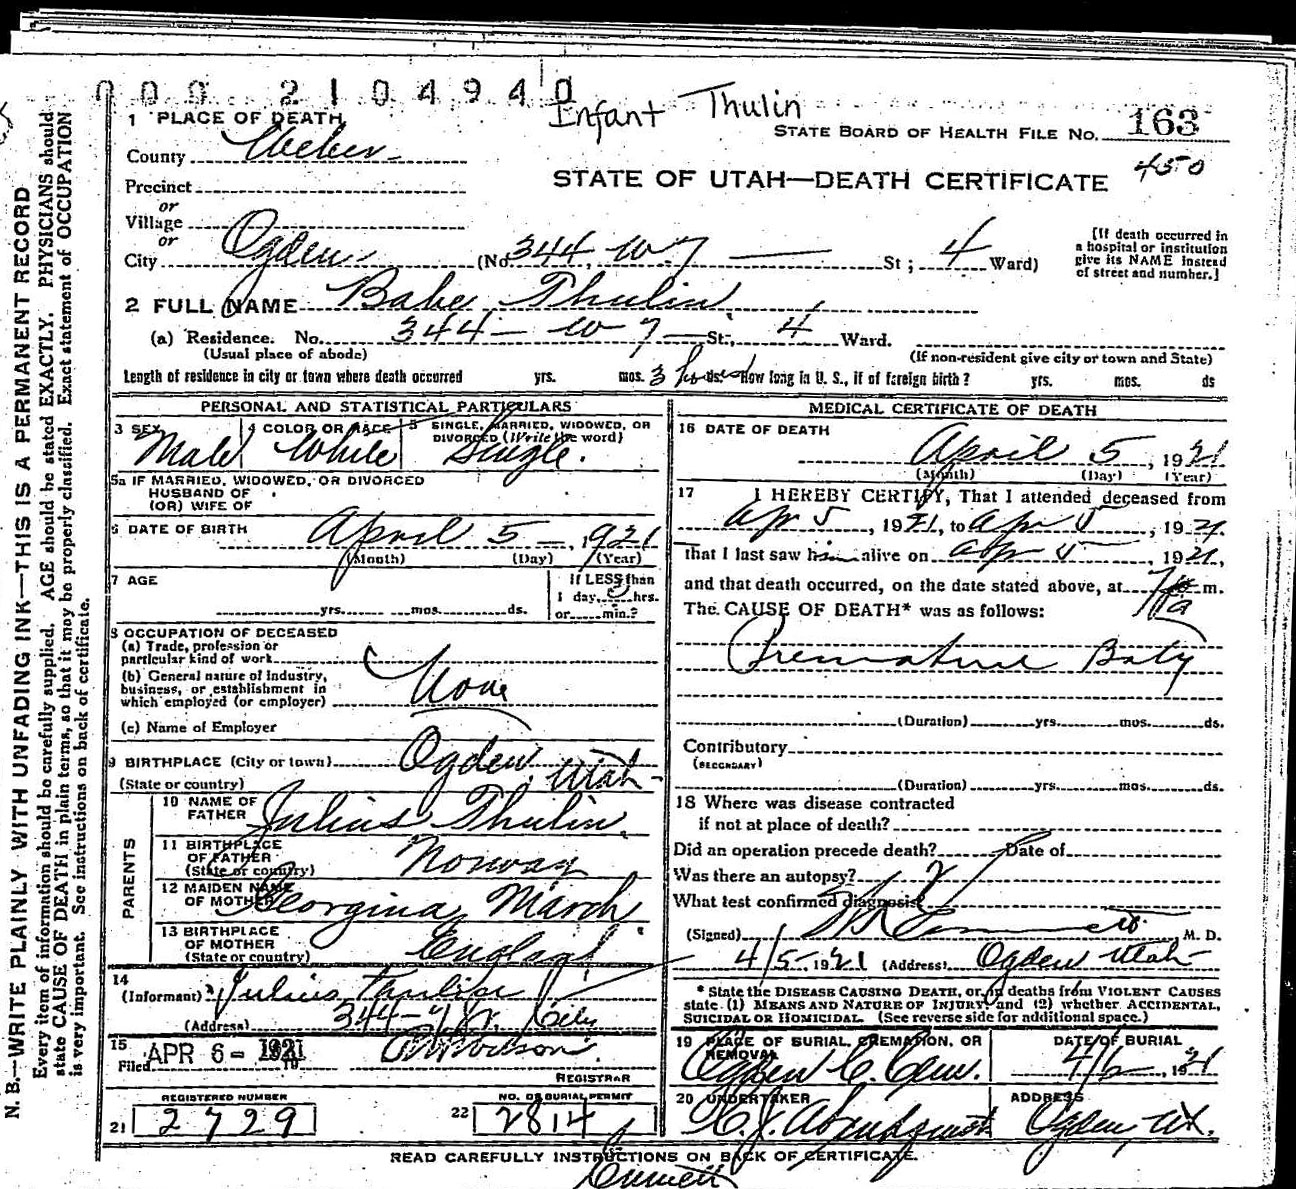 0002104940
Infant Thulin
1 PLACE OF DEATH
STATE BOARD OF HEALTH FILE No. 163
County Weber
450
STATE OF UTAH—DEATH CERTIFICATE
Precinct
or
Village
or
City Ogden (No. 344 W 7 St; 4 Ward)
[If death occurred in
a hospital or institution
give its NAME instead
of street and number.]
2 FULL NAME Babe Thulin
(a) Residence. No. 344 - W 7 St., 4 Ward.
(Usual place of abode) (If non-resident give city or town and State)
Length of residence in city or town where death occurred yrs. mos. 3 hours ds. How long in U. S., if of foreign birth? yrs. mos. ds
PERSONAL AND STATISTICAL PARTICULARS
3 SEX Male
4 COLOR OR RACE White
5 SINGLE, MARRIED, WIDOWED, OR
DIVORCED (Write the word) Single.
5a IF MARRIED, WIDOWED, OR DIVORCED
HUSBAND OF
(OR) WIFE OF
6 DATE OF BIRTH April 5 -, 1921
(Month) (Day) (Year)
7 AGE yrs. mos. ds.
If LESS than
1 day, 3 hrs.
or min.?
8 OCCUPATION OF DECEASED
(a) Trade, profession or
particular kind of work
(b) General nature of industry,
business, or establishment in
which employed (or employer) None
(c) Name of Employer
9 BIRTHPLACE (City or town) Ogden, Utah
(State or country)
PARENTS
10 NAME OF
FATHER Julius Thulin
11 BIRTHPLACE
OF FATHER
(State or country) Norway
12 MAIDEN NAME
OF MOTHER Georgina March
13 BIRTHPLACE
OF MOTHER
(State or country) England
14
(Informant) Julius Thulin
(Address) 344-7 W. City
15
Filed APR 6 - 1921 19
REGISTRAR
REGISTERED NUMBER
21 2729
NO. OF BURIAL PERMIT
22 2814
MEDICAL CERTIFICATE OF DEATH
16 DATE OF DEATH
April 5, 1921
(Month) (Day) (Year)
17 I HEREBY CERTIFY, That I attended deceased from
Apr 5, 1921, to Apr 5, 1921
that I last saw him alive on Apr 5, 1921,
and that death occurred, on the date stated above, at 7 a m.
The CAUSE OF DEATH* was as follows:
Premature Baby
(Duration) yrs. mos. ds.
Contributory
(SECONDARY)
(Duration) yrs. mos. ds.
18 Where was disease contracted
if not at place of death?
Did an operation precede death? Date of
Was there an autopsy?
What test confirmed diagnosis?
(Signed) M. D.
4/5 1921 (Address) Ogden Utah
* State the DISEASE CAUSING DEATH, or, in deaths from VIOLENT CAUSES
state (1) MEANS AND NATURE OF INJURY; and (2) whether ACCIDENTAL,
SUICIDAL OR HOMICIDAL. (See reverse side for additional space.)
19 PLACE OF BURIAL, CREMATION, OR
REMOVAL
Ogden C. Cem.
DATE OF BURIAL
4/6, 1921
20 UNDERTAKER
ADDRESS
Ogden, Ut.
READ CAREFULLY INSTRUCTIONS ON BACK OF CERTIFICATE.
Emmett
N. B.—WRITE PLAINLY WITH UNFADING INK—THIS IS A PERMANENT RECORD
Every item of information should be carefully supplied. AGE should be stated EXACTLY. PHYSICIANS should
state CAUSE OF DEATH in plain terms, so that it may be properly classified. Exact statement of OCCUPATION
is very important. See instructions on back of certificate.